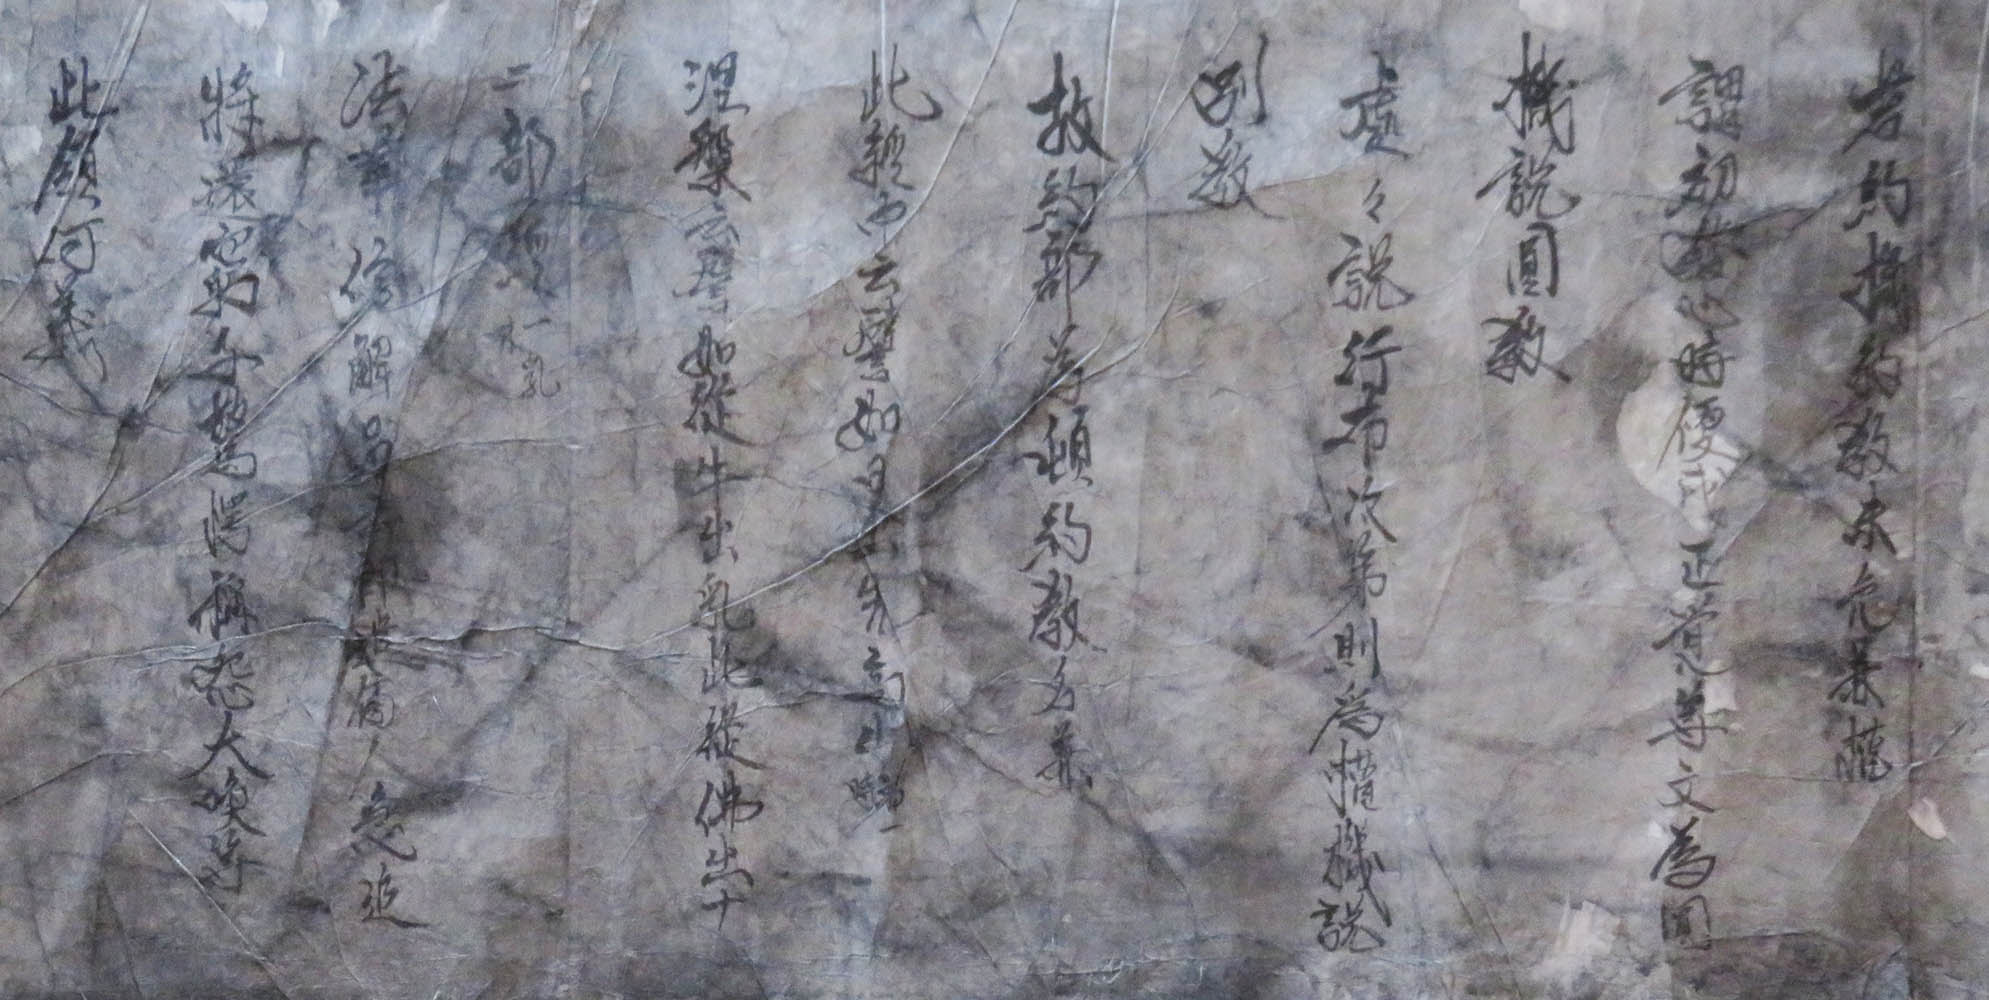 若約機約教未免兼權
謂初發心時便成正覺等文為圓
機說圓教
處々說行布次第則為權機說
別教
故約部為頓約教名兼
此經中云譬如日出先高山
涅槃云譬如從牛出乳此從佛出十
二部經一乳
法華信解品云即遣傍人急追
將還窮子驚愕稱怨大喚等
此領何義